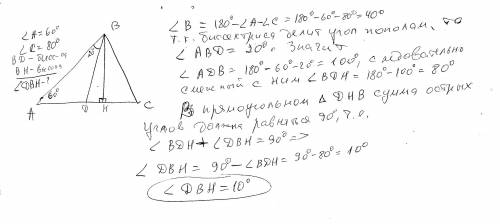 ∠A=60°
∠C=80°
BD - бисс-са
BH - высота
∠DBH - ?
B
20°
60°
A
D
H
C
∠B = 180°-∠A-∠C = 180°-60°-80° = 40°
т.к. биссектриса делит угол пополам, то
∠ABD = 20°. Значит
∠ADB = 180°-60°-20° = 100°, следовательно
смежный с ним ∠BDH = 180°-100° = 80°
В прямоугольном Δ DHB сумма острых
углов должна равняться 90°, т.е.
∠BDH + ∠DBH = 90° =>
∠DBH = 90° - ∠BDH = 90°-80° = 10°
∠DBH = 10°